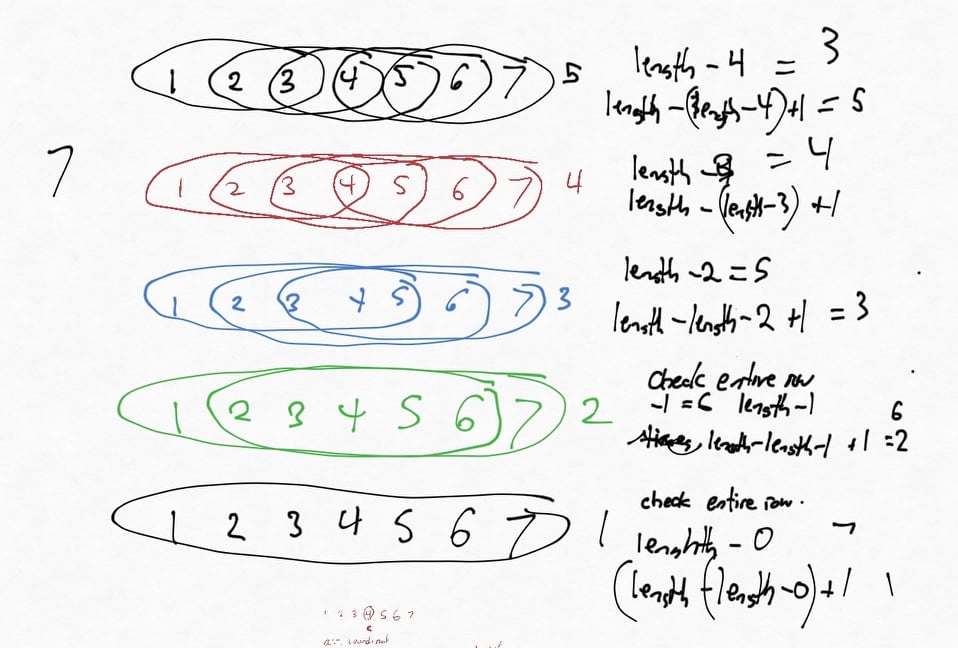 1 2 3 4 5 6 7 5
length - 4 = 3
length - (length - 4) + 1 = 5
7
1 2 3 4 5 6 7 4
length - 3 = 4
length - (length - 3) + 1
1 2 3 4 5 6 7 3
length - 2 = 5
length - length - 2 + 1 = 3
1 2 3 4 5 6 7 2
check entire row
-1 = 6 length - 1
6
length - length - 1 + 1 = 2
1 2 3 4 5 6 7 1
check entire row.
length - 0 7
(length - (length - 0) + 1 1
1 2 3 4 5 6 7
c